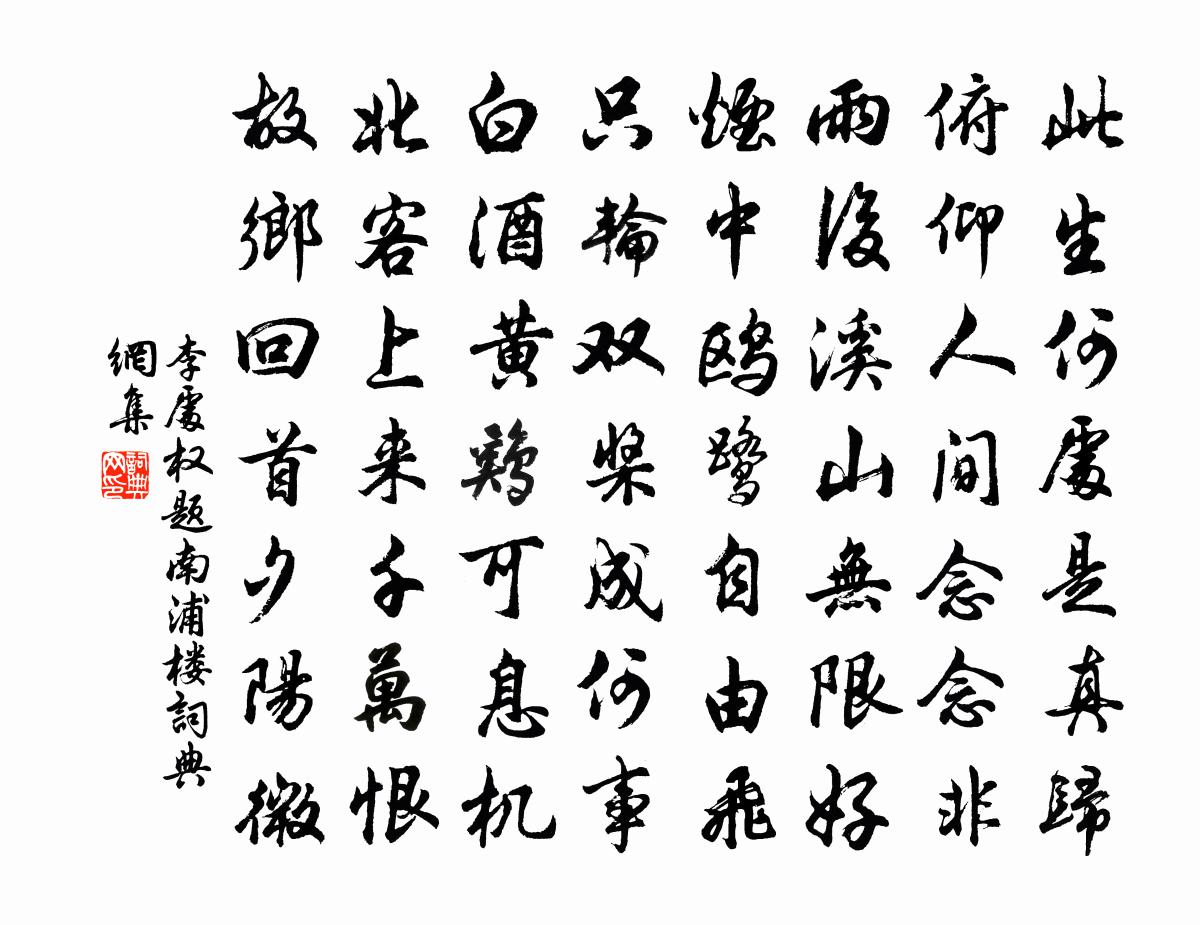 此生何處是真歸
俯仰人间念念非
雨後溪山無限好
煙中鸥鹭自由飛
只輪双槳成何事
白酒黄鷄可息机
北客上来千萬恨
故鄉回首夕陽微
李處权题南浦楼詞典
網集
詞典
网印